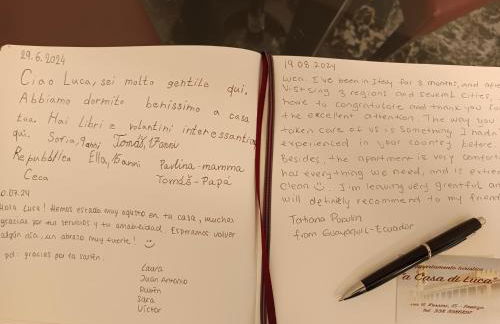 29.6.2024
Ciao Luca, sei molto gentile qui.
Abbiamo dormito benissimo a casa
tua. Hai libri e volantini interessanti
qui. Sofia, 9anni Tomáš, 17anni
Repubblica Ella, 15anni Pavlina-mamma
Ceca Tomáš-Papá
0.07.24
Hola Luca! Hemos estado muy agusto en tu casa, muchas
gracias por tus servicios y tu amabilidad. Esperamos volver
algún día.. un abrazo muy fuerte!
pd: gracias por la
Laura
Juan Antonio
Rubén
Sara
Víctor
19.08.2024
Luca, I've been in Italy for 3 months, and after
visiting 3 regions and several cities,
have to congratulate and thank you for
the excellent attention. The way you
taken care of us is something I had
experienced in your country before.
Besides, the apartment is very comfort
has everything we need, and is extrem
clean. I'm leaving very grateful and
will definitely recommend to my friend
Tatiana
from Guayaquil-Ecuador
Appartamento turistico
a Casa di Luca